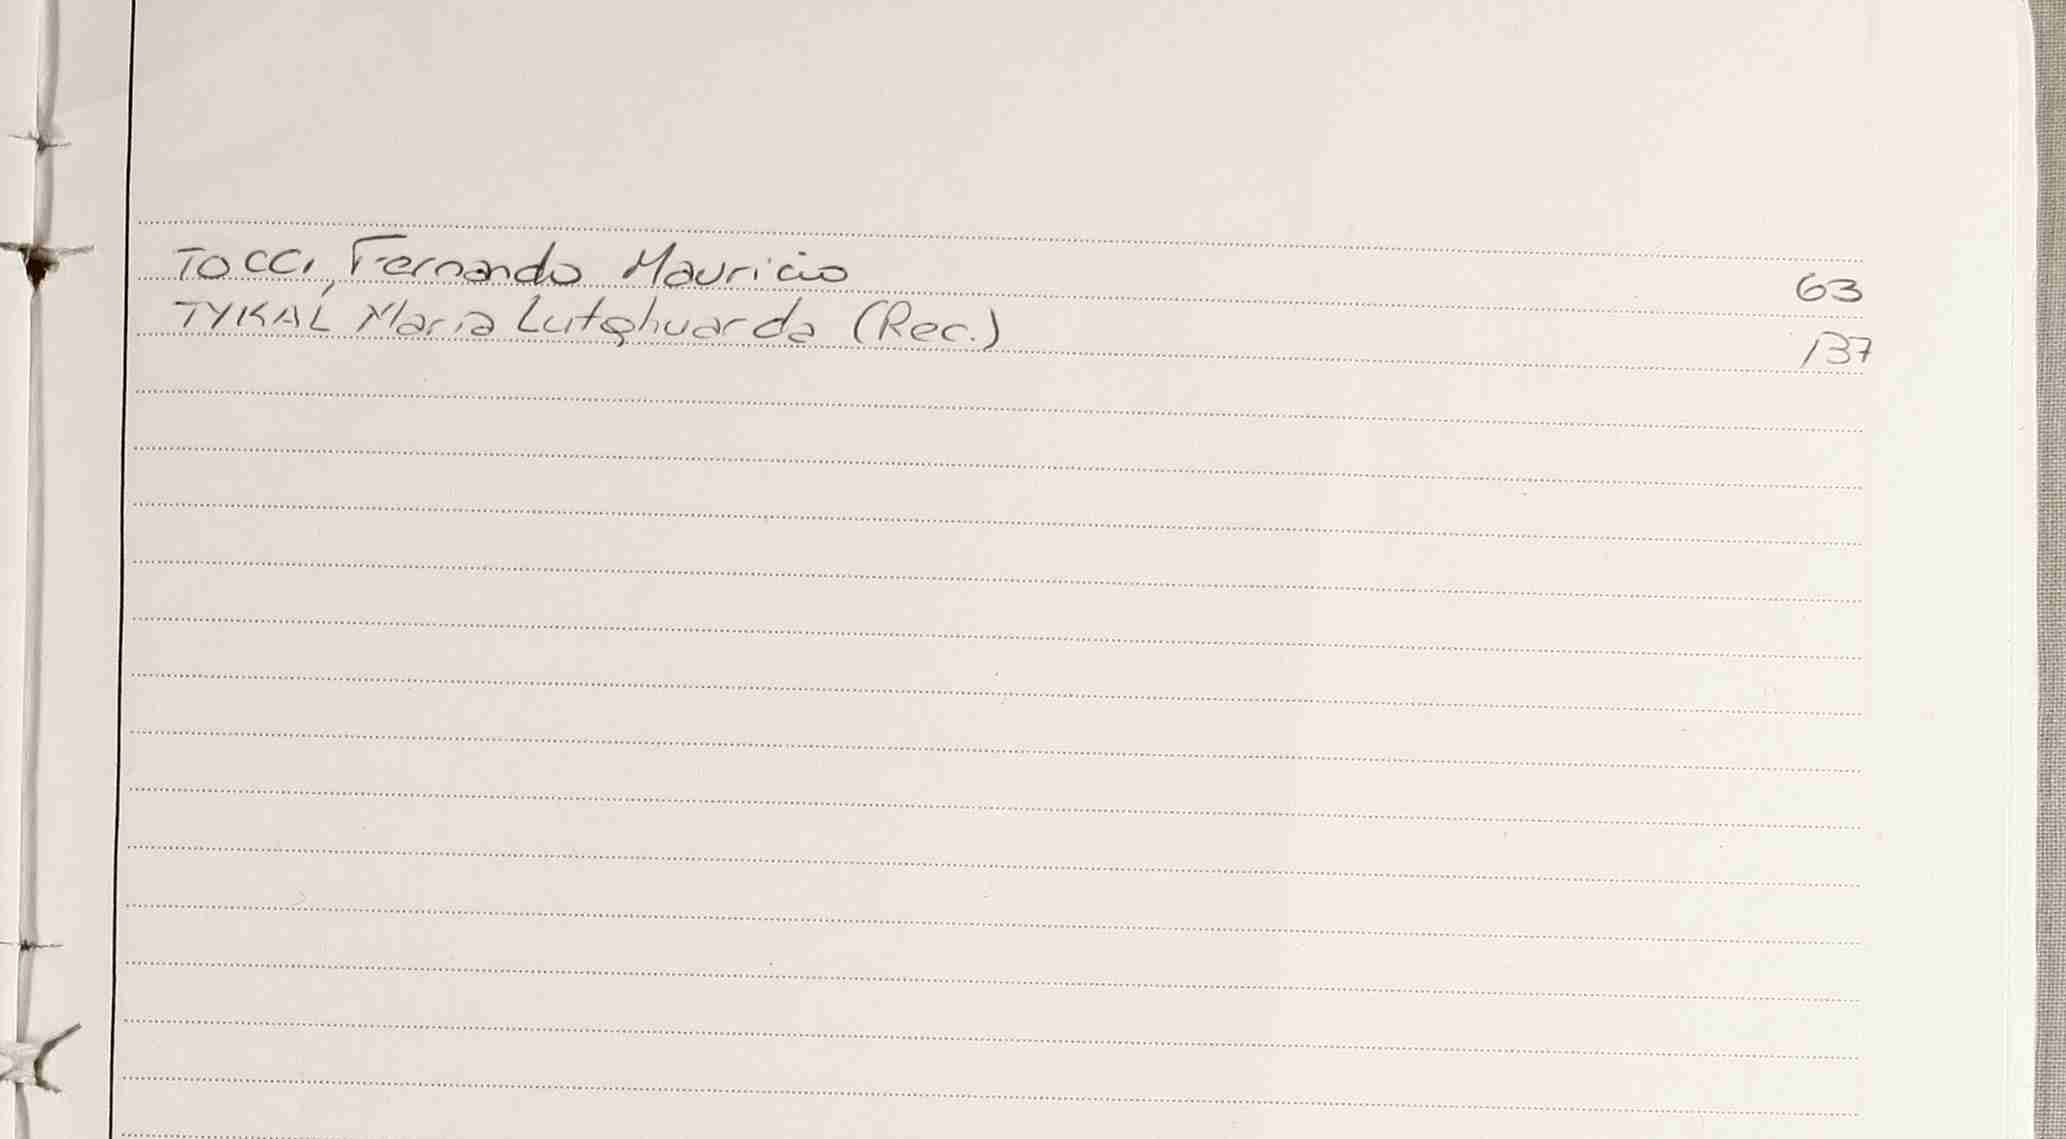 TOCCI, Fernando Mauricio 63
TYKAL Maria Lutghuarda (Rec.) 137